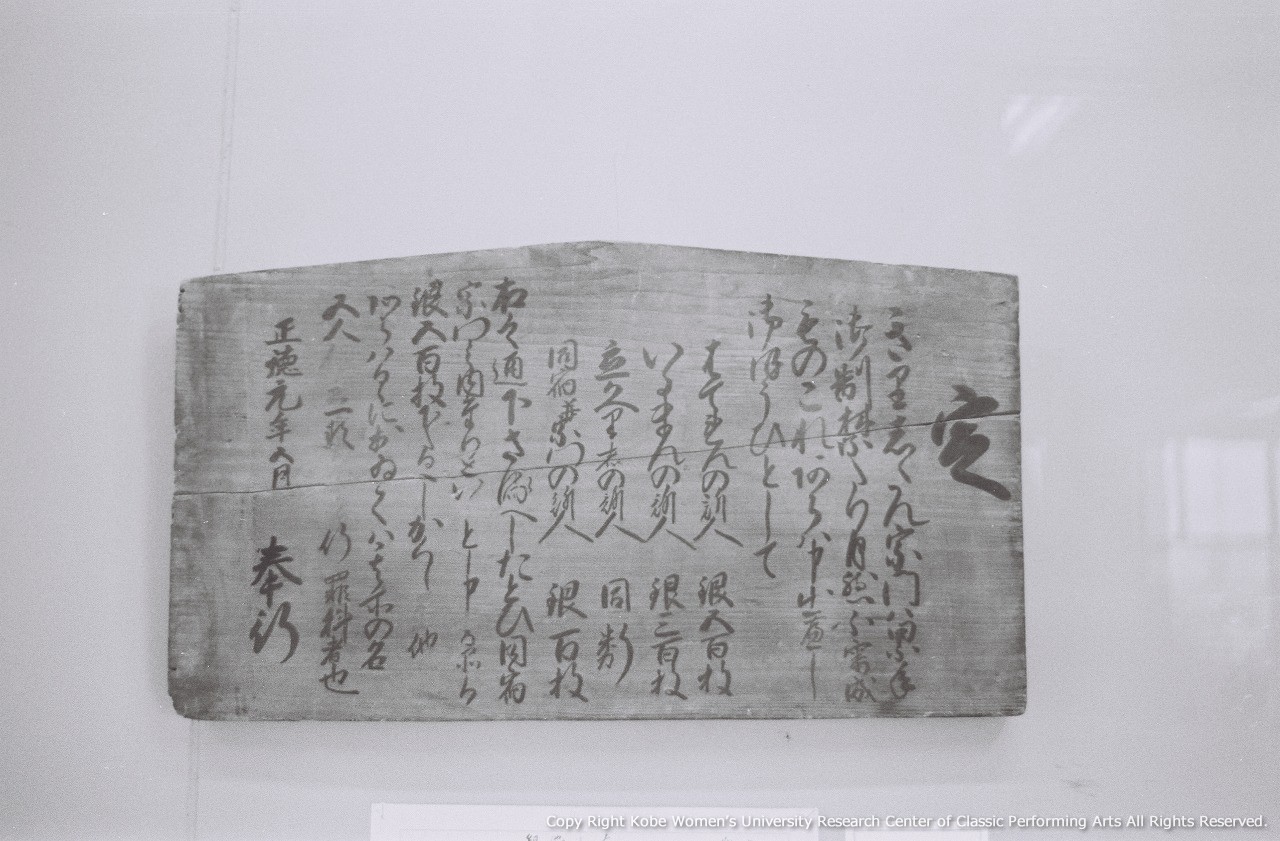 定
きりしたん宗門ハ累年
御制禁たり自然不審成
ものこれあらハ申出へし
御ほうひとして
はてれんの訴人 銀五百枚
いるまんの訴人 銀三百枚
立かへり者の訴人 同断
同宿并宗門の訴人 銀百枚
右之通下さるへしたとひ同宿
宗門之内たりといふとも申出る品により
銀五百枚下さるへしかくし置 他
あらハるゝにおゐてハ其所の名
五人 罪科者也
正徳元年五月
奉行
Copy Right Kobe Women's University Research Center of Classic Performing Arts All Rights Reserved.